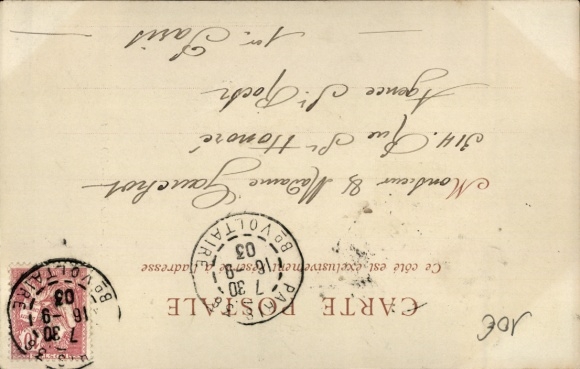 CARTE POSTALE
Ce côté est exclusivement réservé à l'adresse
7 30
16 -9
03
Bᴅ VOLTAIRE
7 30
16 -9
03
Bᴅ VOLTAIRE
Monsieur & Madame Gauchot
314. Rue Sᵗ Honoré
Agence Sᵗ Roch
1er. Paris
10€